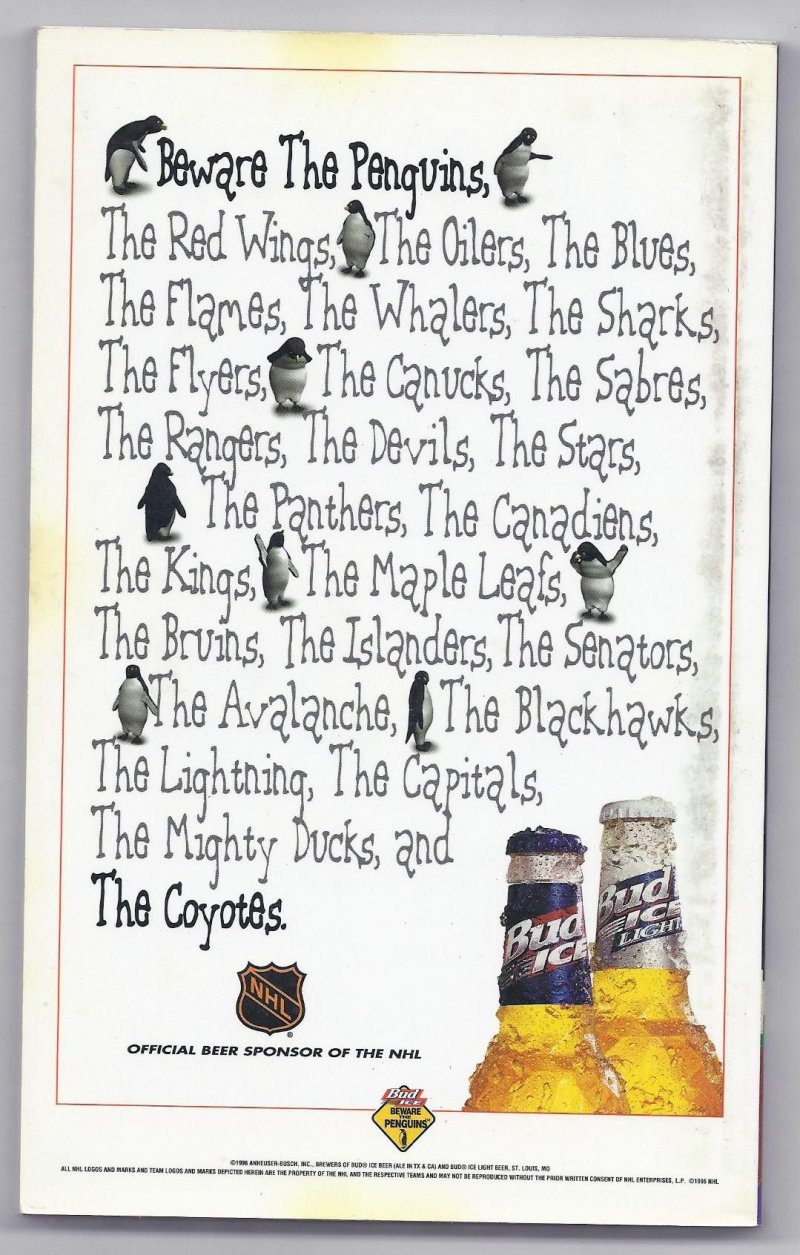 Beware The Penguins,
The Red Wings, The Oilers, The Blues,
The Flames, The Whalers, The Sharks,
The Flyers, The Canucks, The Sabres,
The Rangers, The Devils, The Stars,
The Panthers, The Canadiens,
The Kings, The Maple Leafs,
The Bruins, The Islanders, The Senators,
The Avalanche, The Blackhawks,
The Lightning, The Capitals,
The Mighty Ducks, and
The Coyotes.
Bud ICE
Bud ICE LIGHT
NHL ®
OFFICIAL BEER SPONSOR OF THE NHL
Bud ICE
BEWARE
THE
PENGUINS
©1996 ANHEUSER-BUSCH, INC., BREWERS OF BUD® ICE BEER (ALE IN TX & CA) AND BUD® ICE LIGHT BEER, ST. LOUIS, MO
ALL NHL LOGOS AND MARKS AND TEAM LOGOS AND MARKS DEPICTED HEREIN ARE THE PROPERTY OF THE NHL AND THE RESPECTIVE TEAMS AND MAY NOT BE REPRODUCED WITHOUT THE PRIOR WRITTEN CONSENT OF NHL ENTERPRISES, L.P. ©1996 NHL